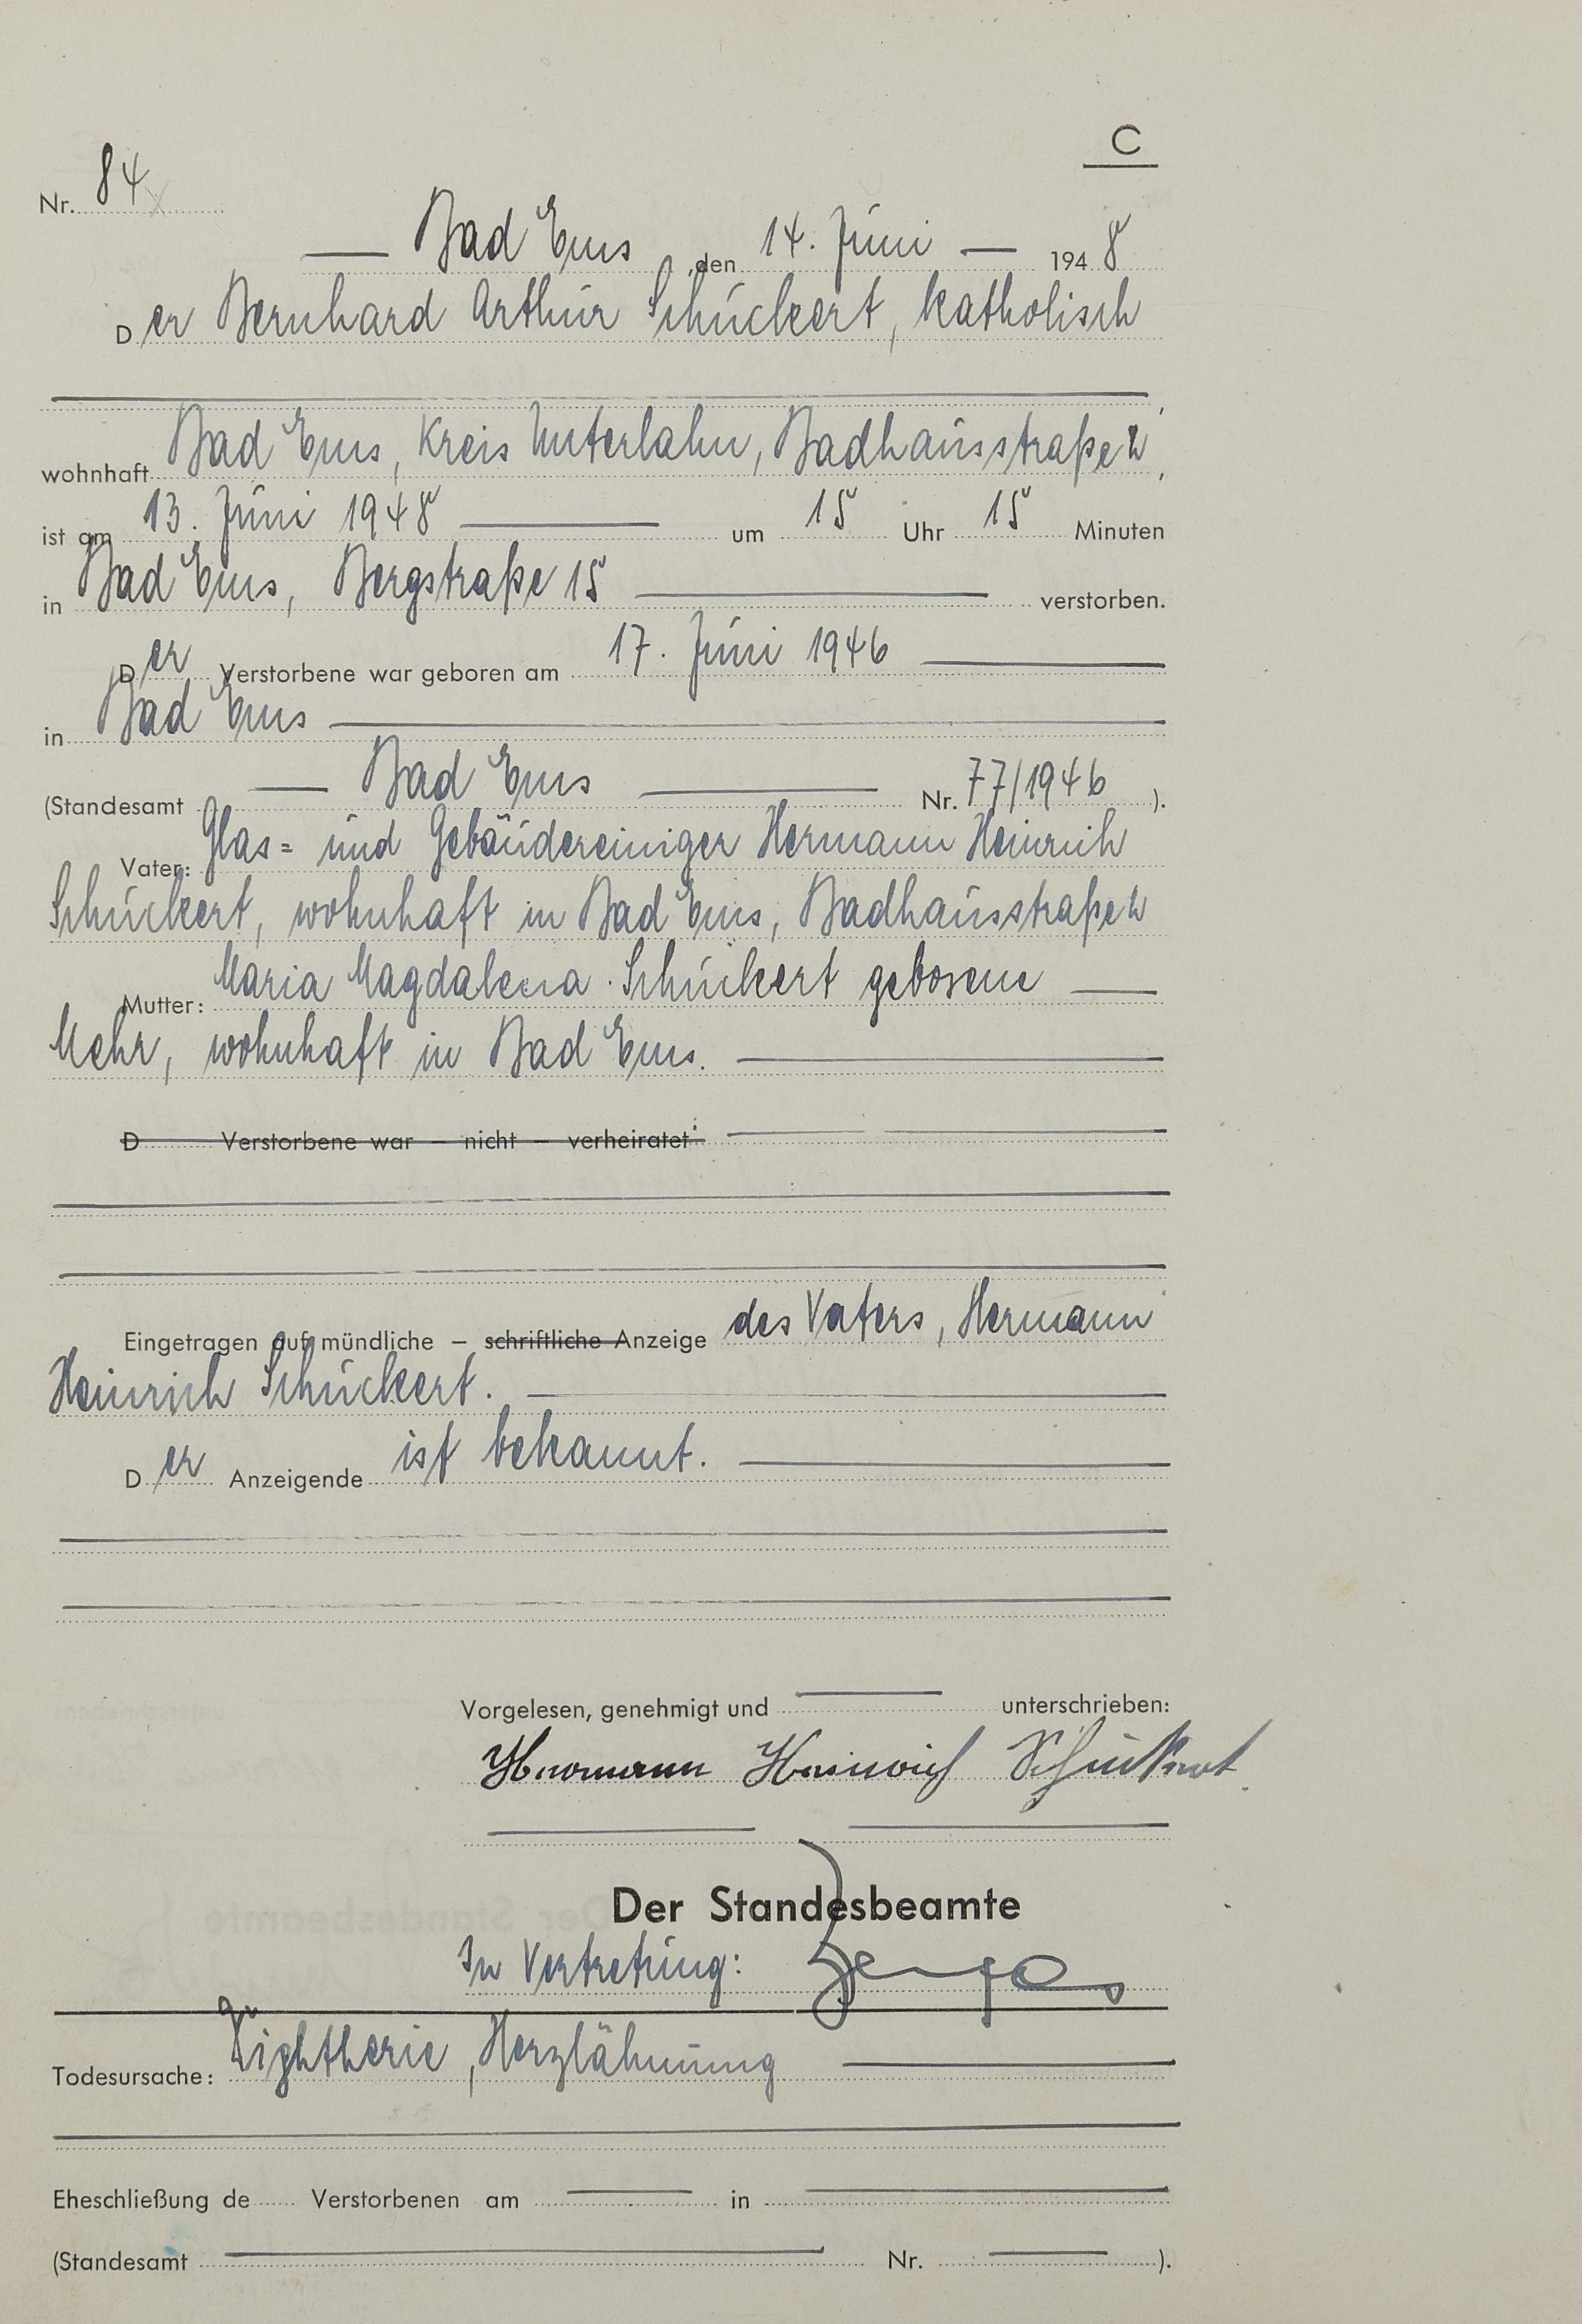 C
Nr. 84
— Bad Ems, den 14. Juni — 1948
Der Bernhard Arthur Schückert, katholisch
wohnhaft Bad Ems, Kreis Unterlahn, Badhausstraße 2,
ist am 13. Juni 1948 — um 15 Uhr 15 Minuten
in Bad Ems, Bergstraße 15 — verstorben.
Der Verstorbene war geboren am 17. Juni 1946 —
in Bad Ems —
(Standesamt — Bad Ems — Nr. 77/1946 ).
Vater: Glas= und Gebäudereiniger Hermann Heinrich
Schückert, wohnhaft in Bad Ems, Badhausstraße 2
Mutter: Maria Magdalena Schückert geborene —
Mehr, wohnhaft in Bad Ems. —
D Verstorbene war – nicht – verheiratet
Eingetragen auf mündliche – schriftliche Anzeige des Vaters, Hermann
Heinrich Schückert. —
Der Anzeigende ist bekannt. —
Vorgelesen, genehmigt und — unterschrieben:
Hermann Heinrich Schückert
Der Standesbeamte
In Vertretung:
Todesursache: Diphtherie, Herzlähmung —
Eheschließung de Verstorbenen am — in —
(Standesamt — Nr. — ).